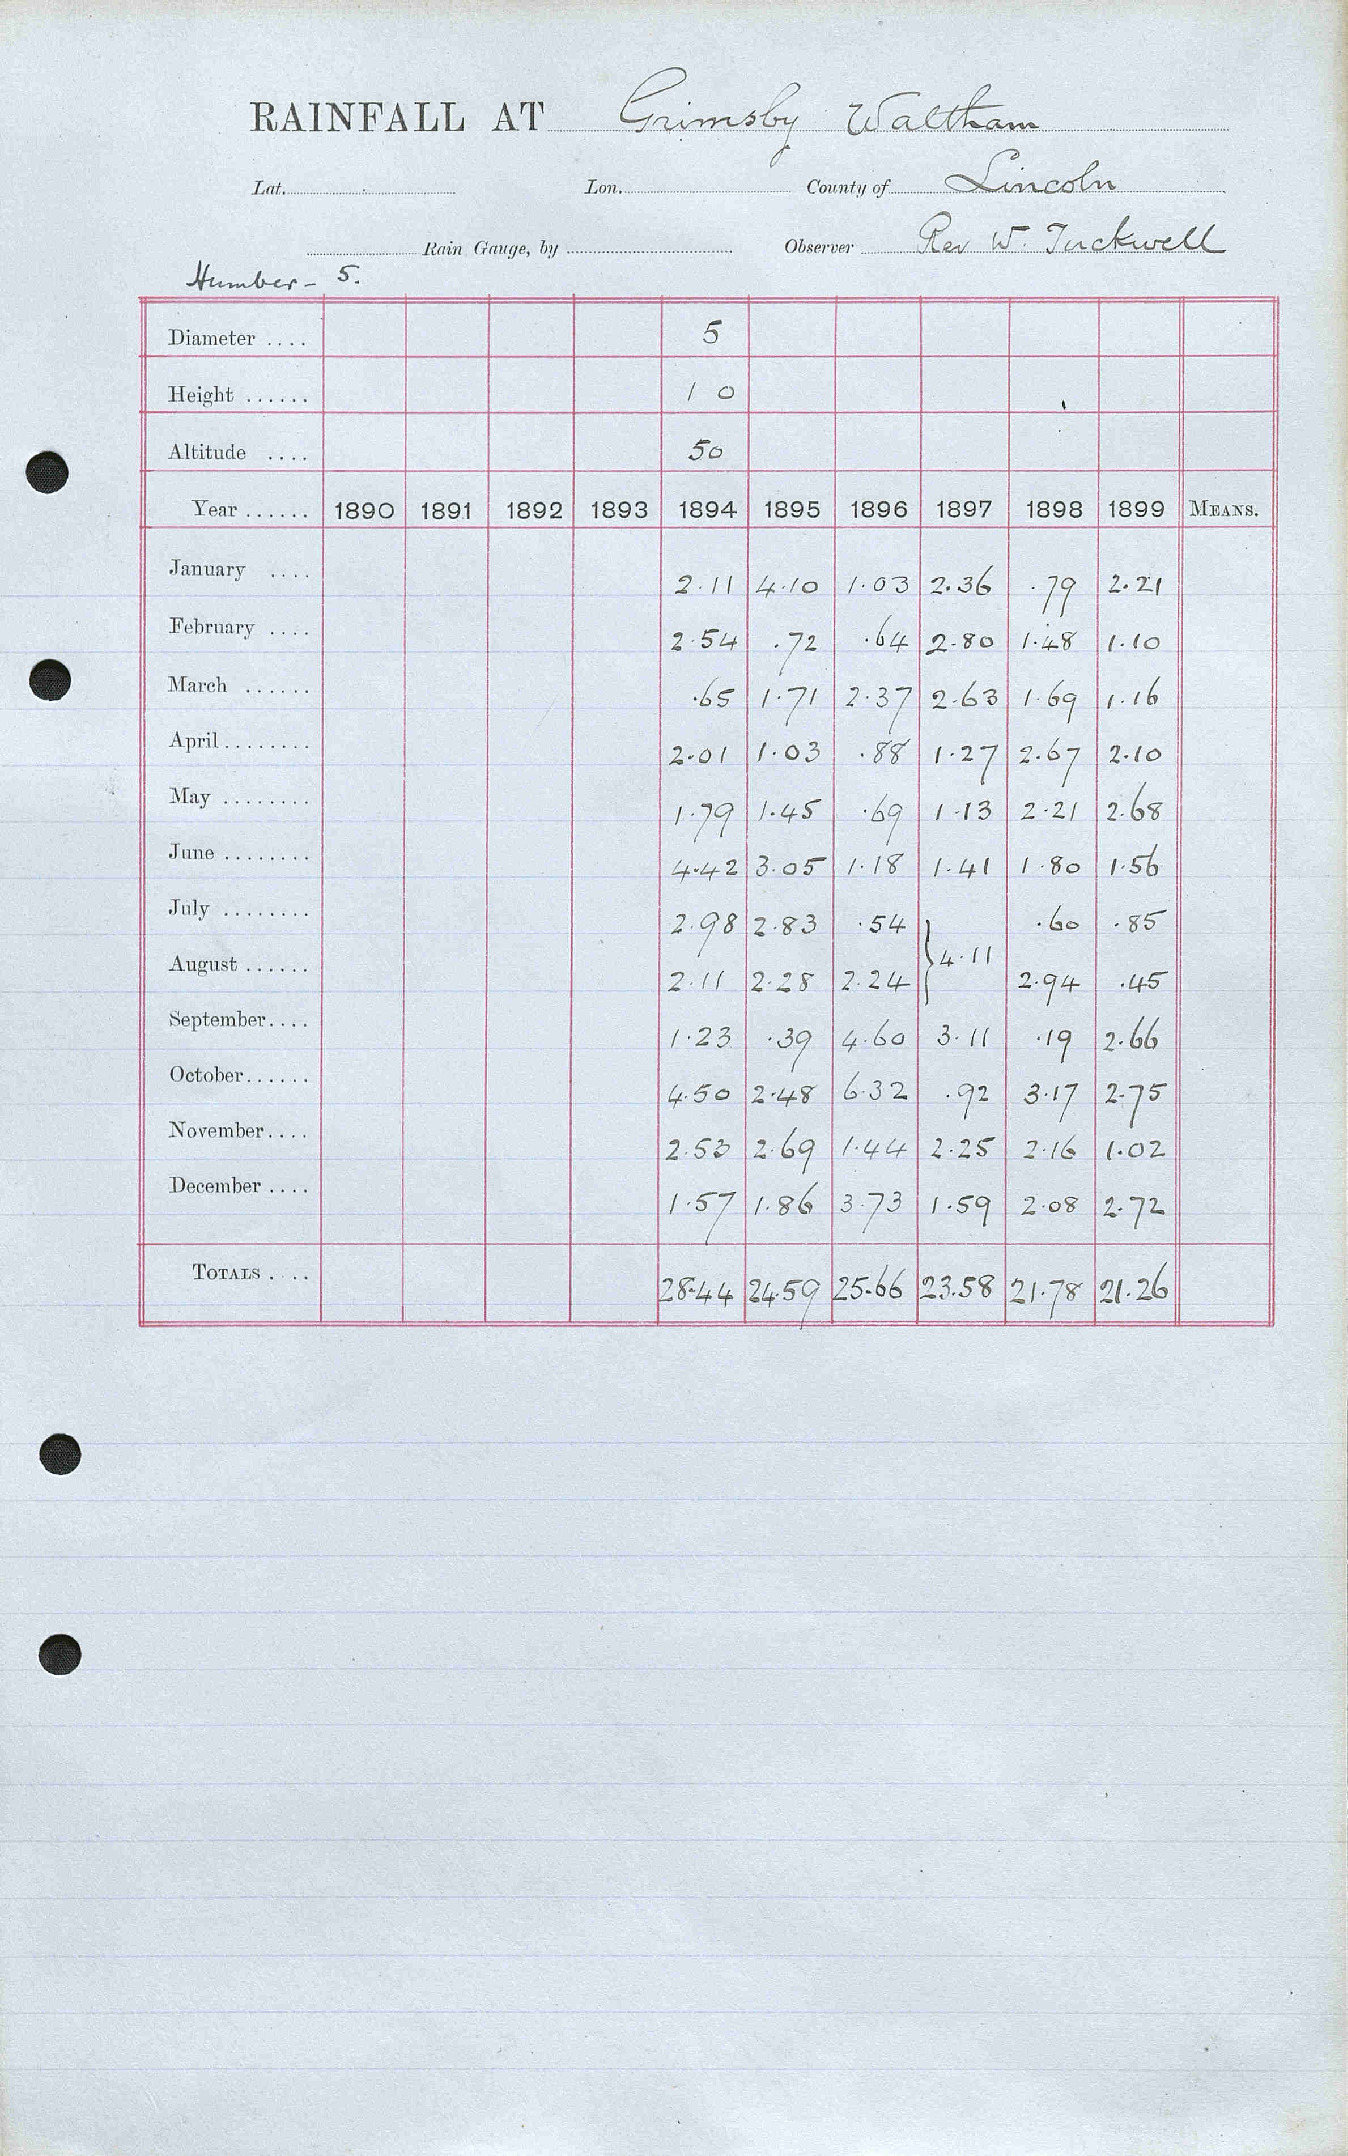 RAINFALL AT Grimsby Waltham
Lat. Lon. County of Lincoln
Rain Gauge, by Observer Rev W. Tuckwell
Humber - 5.
Diameter .... 5
Height ...... 1 0
Altitude .... 50
Year ...... 1890 1891 1892 1893 1894 1895 1896 1897 1898 1899 MEANS.
January .... 2.11 4.10 1.03 2.36 .79 2.21
February .... 2.54 .72 .64 2.80 1.48 1.10
March ...... .65 1.71 2.37 2.63 1.69 1.16
April ........ 2.01 1.03 .88 1.27 2.67 2.10
May ........ 1.79 1.45 .69 1.13 2.21 2.68
June ........ 4.42 3.05 1.18 1.41 1.80 1.56
July ........ 2.98 2.83 .54 .60 .85
} 4.11
August ...... 2.11 2.28 2.24 2.94 .45
September.... 1.23 .39 4.60 3.11 .19 2.66
October...... 4.50 2.48 6.32 .92 3.17 2.75
November.... 2.53 2.69 1.44 2.25 2.16 1.02
December .... 1.57 1.86 3.73 1.59 2.08 2.72
TOTALS .... 28.44 24.59 25.66 23.58 21.78 21.26